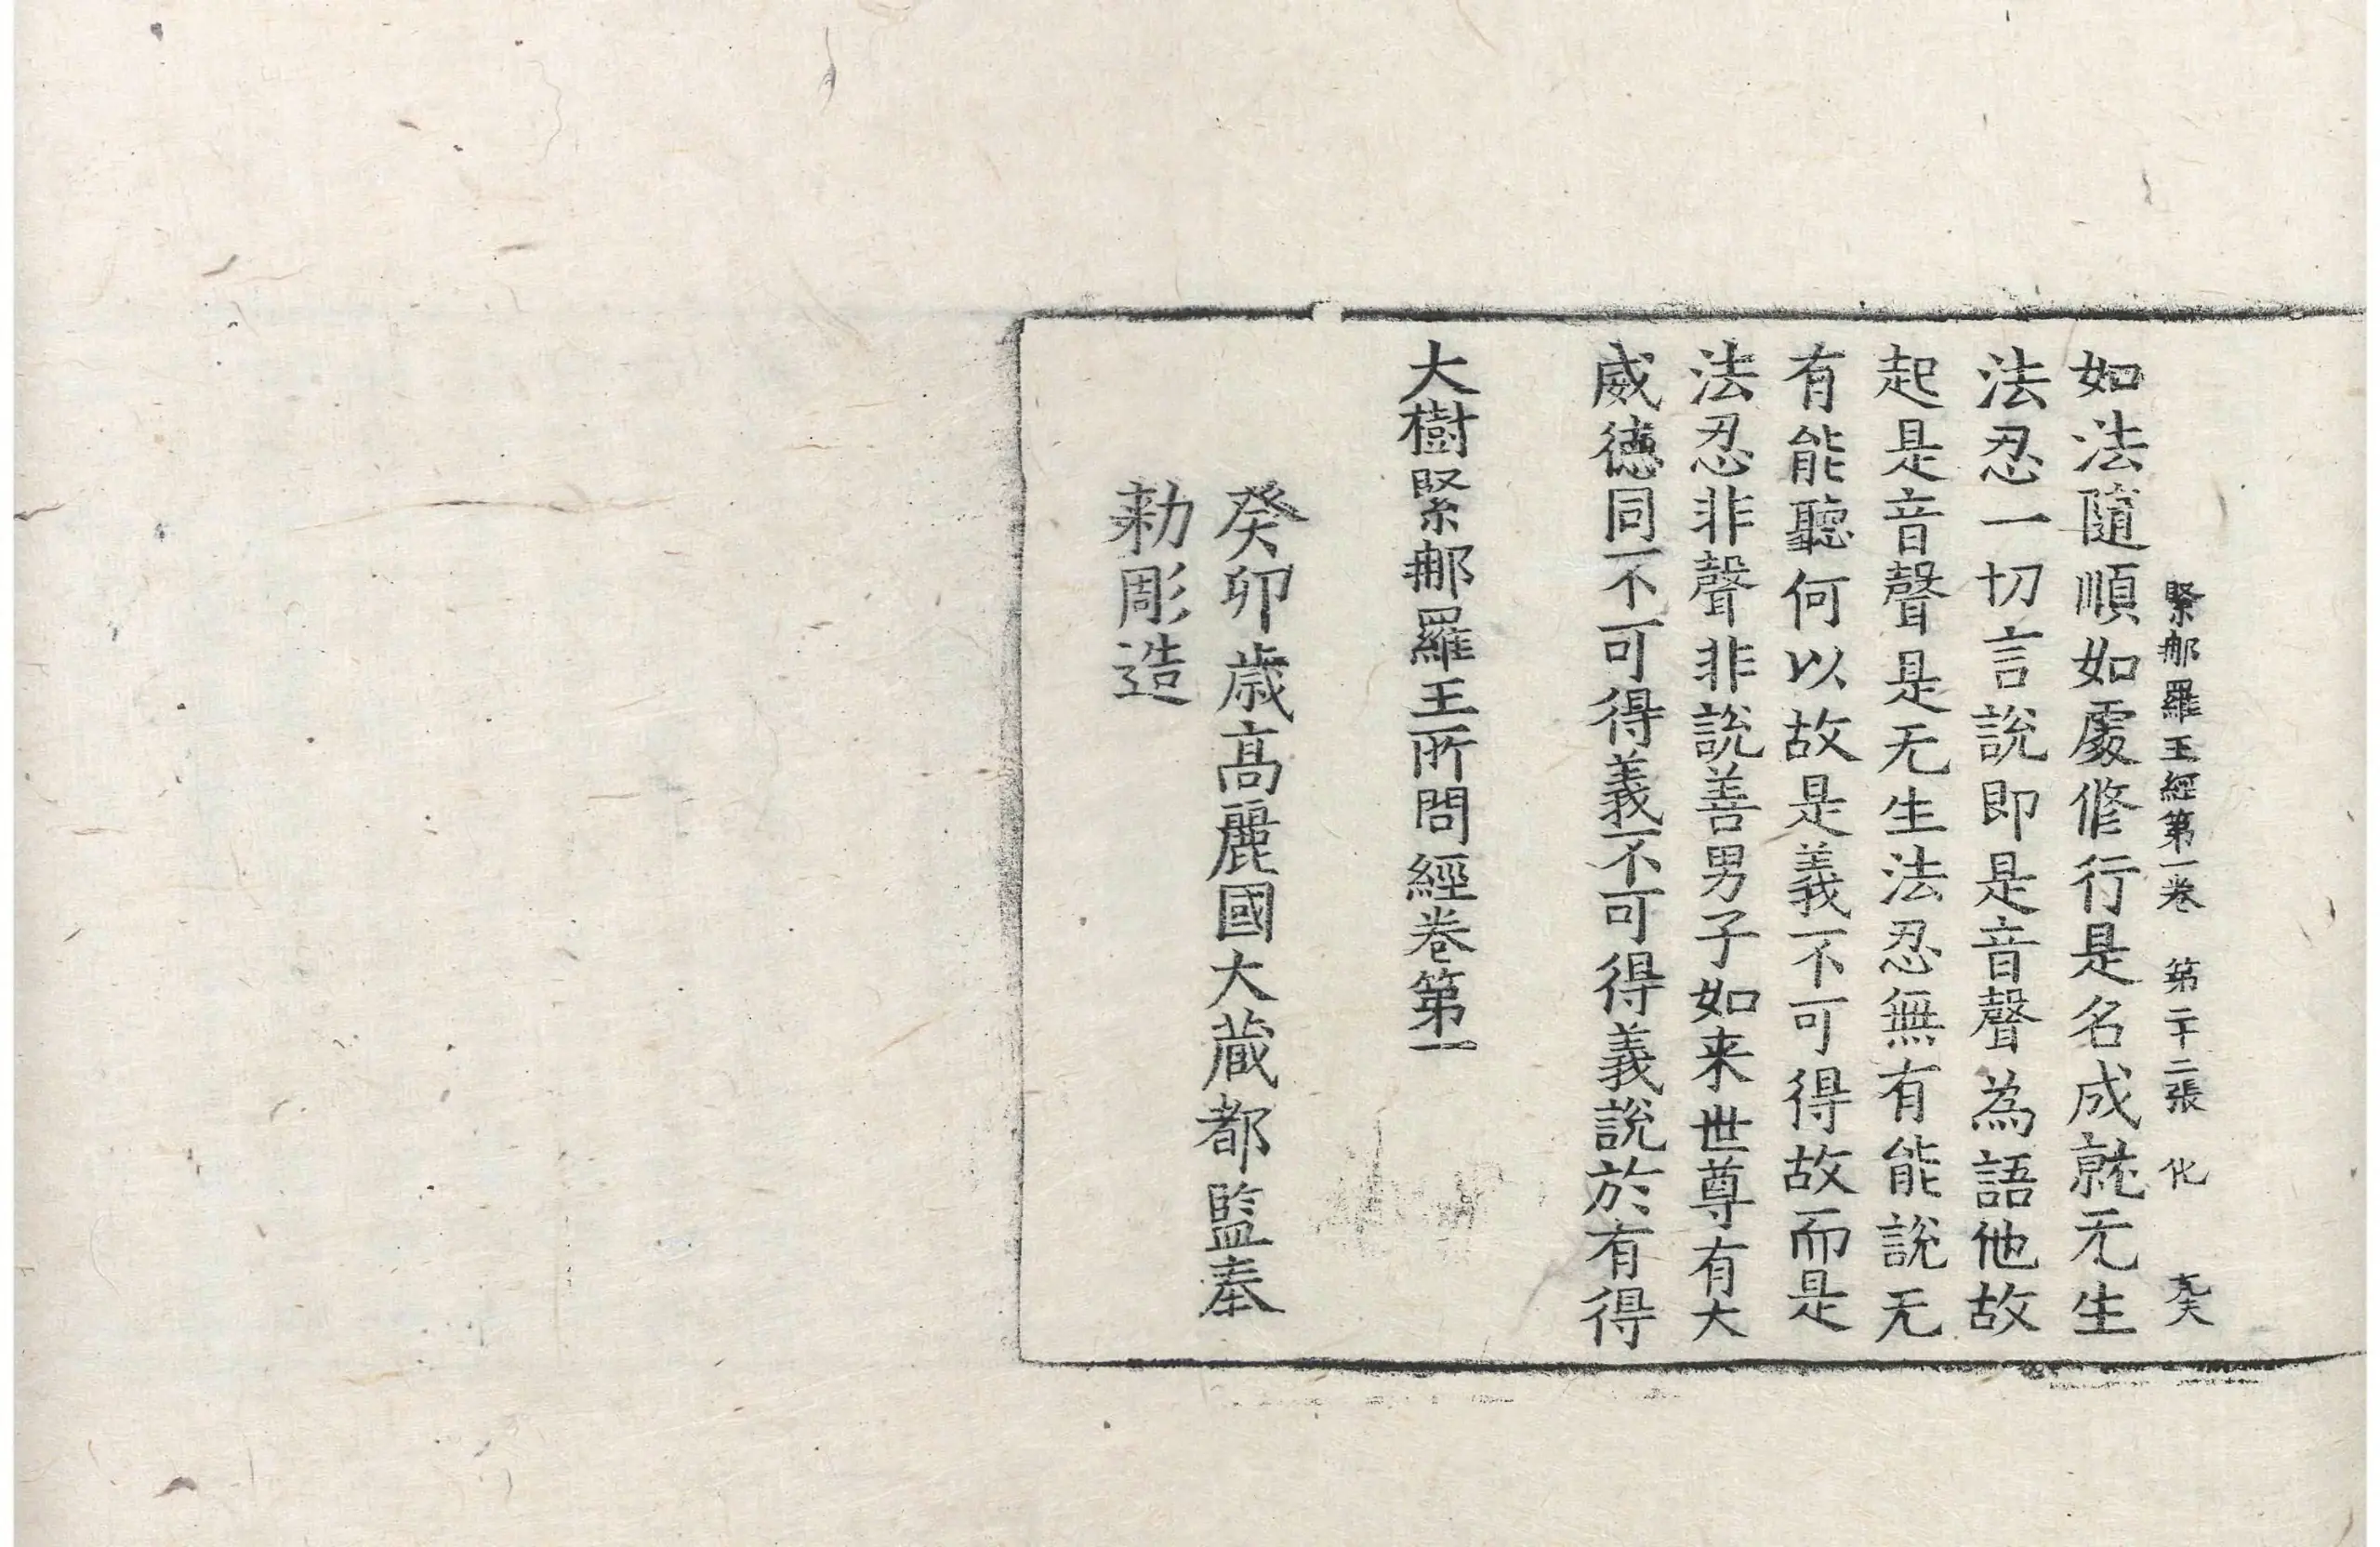 緊那羅王經第一卷　第二十二張　化
如法隨順如處修行是名成就无生
法忍一切言說即是音聲為語他故
起是音聲是无生法忍無有能說无
有能聽何以故是義不可得故而是
法忍非聲非說善男子如来世尊有大
威德同不可得義不可得義說於有得
大樹緊那羅王所問經卷第一
癸卯歲高麗國大藏都監奉
勑彫造